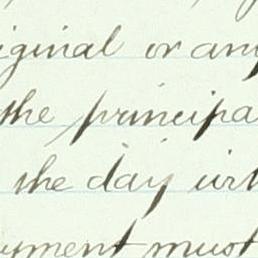 iginal or any
the principa
the day wit
yment must